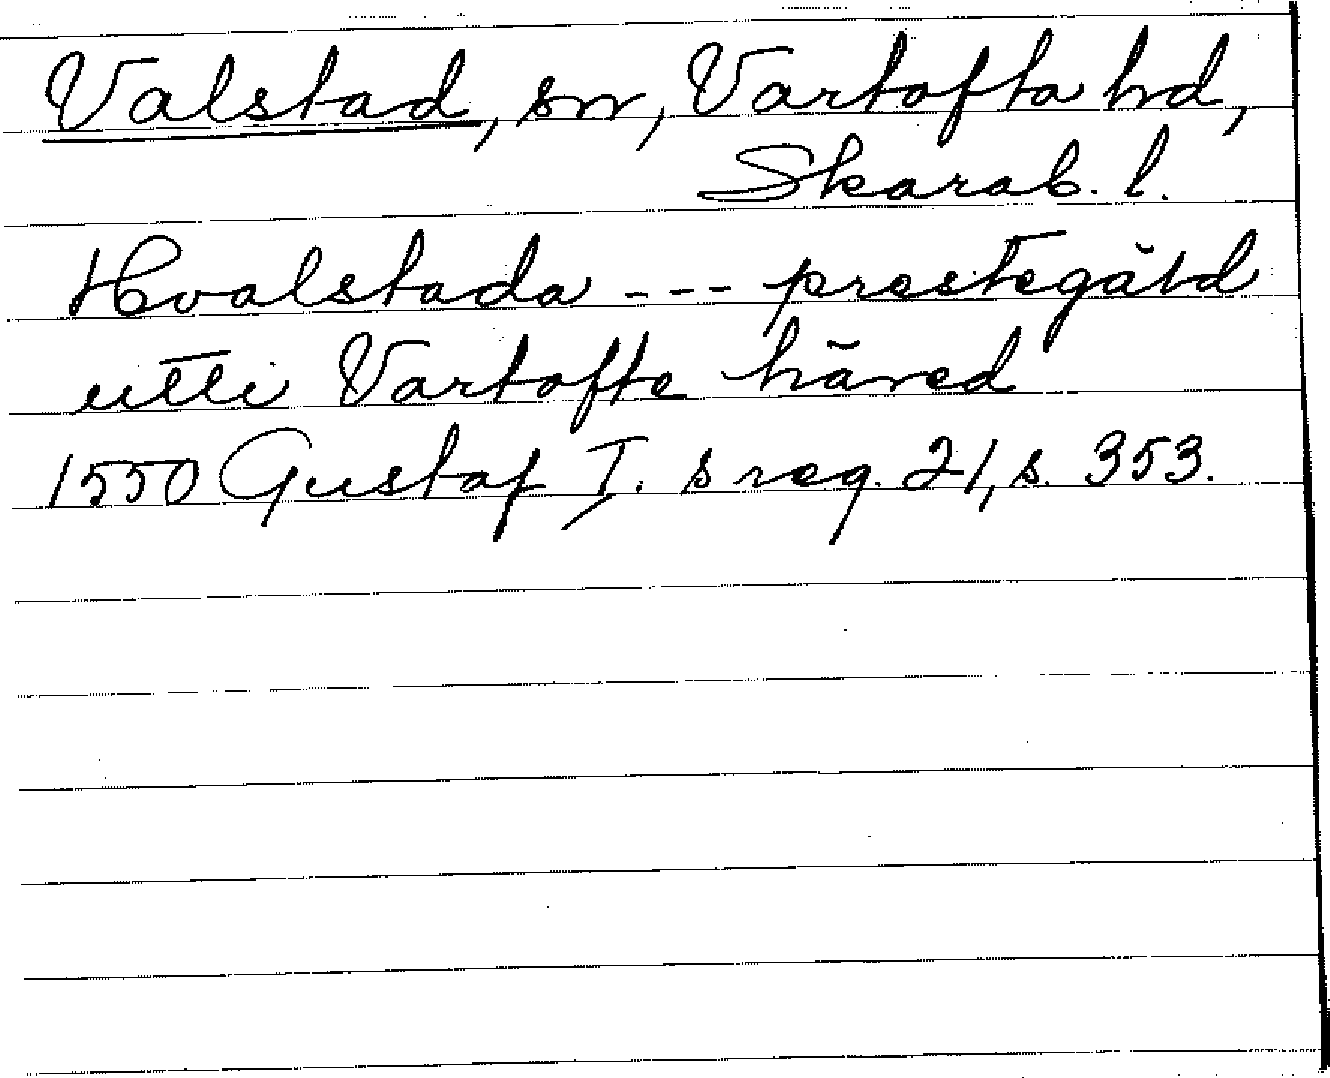 Valstad, sn, Vartofta hd,
Skarab. l.
Hvalstada --- prestegård
utti Vartofte häred
1550 Gustaf I. s reg. 21, s. 353.